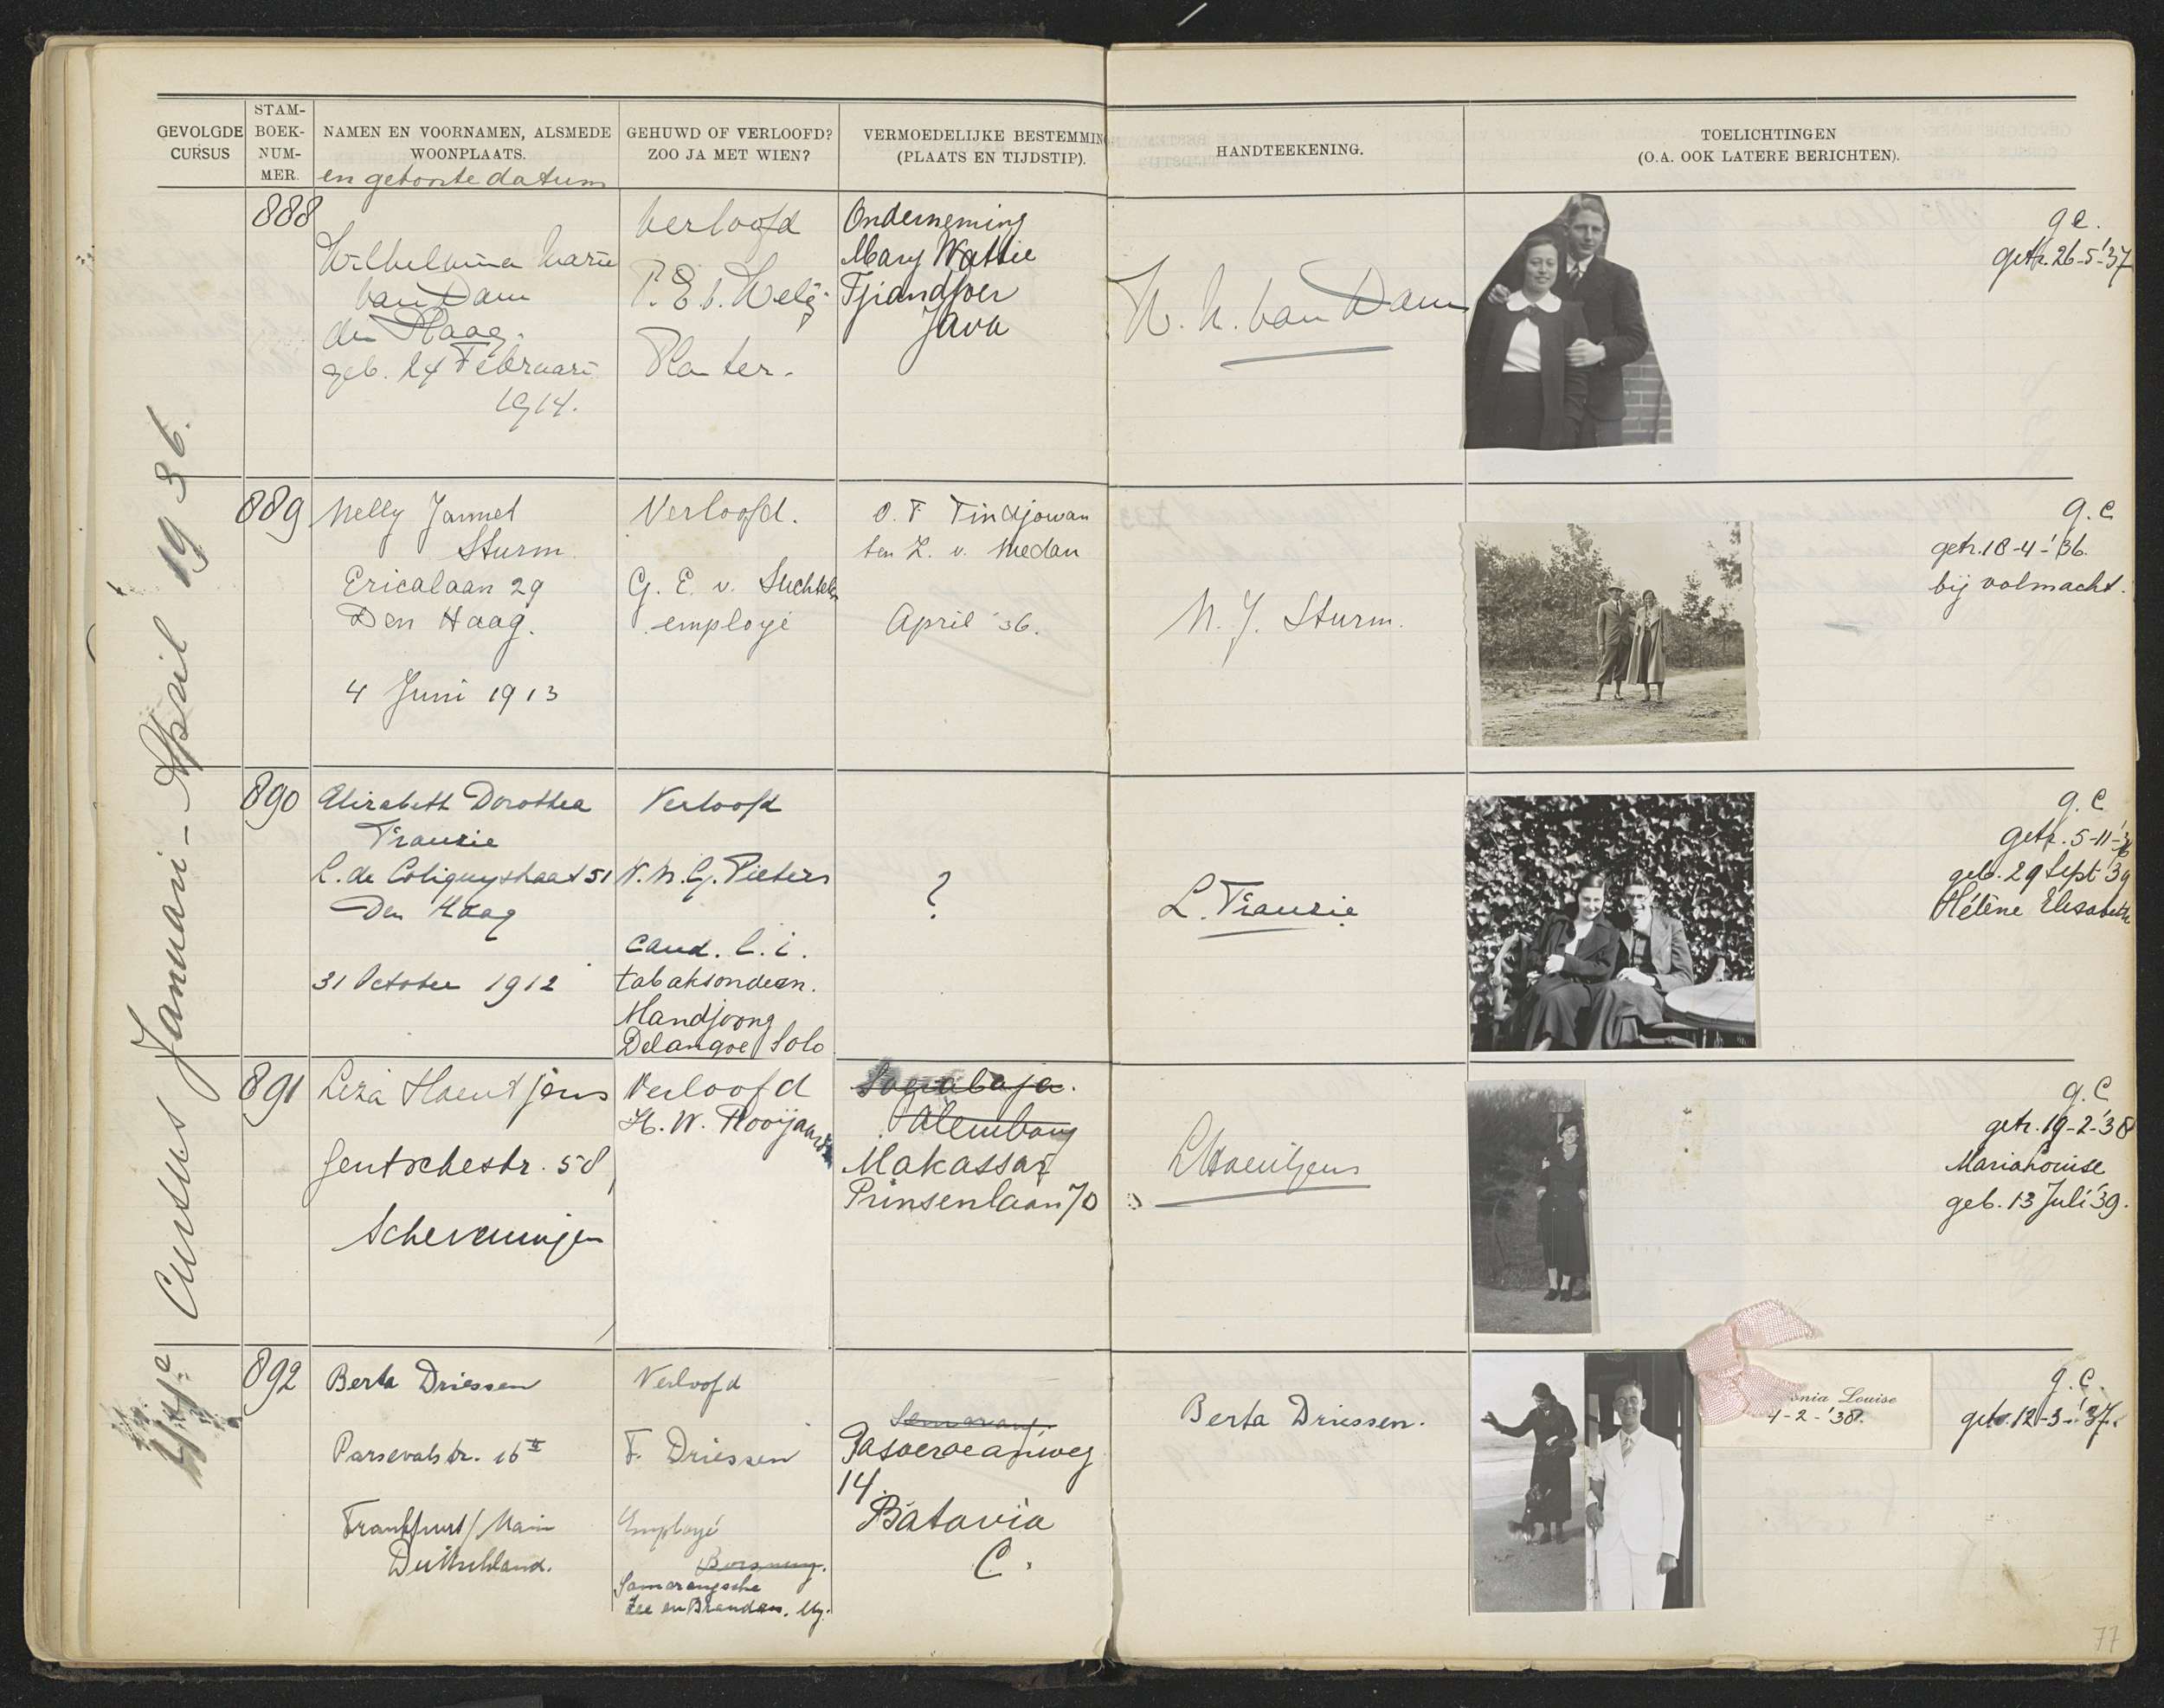 GEVOLGDE CURSUS
STAM-BOEK-NUM-MER.
NAMEN EN VOORNAMEN, ALSMEDE WOONPLAATS.
en geboortedatum
GEHUWD OF VERLOOFD? ZOO JA MET WIEN?
VERMOEDELIJKE BESTEMMING (PLAATS EN TIJDSTIP).
HANDTEEKENING.
TOELICHTINGEN
(O.A. OOK LATERE BERICHTEN).
Cursus Januari - April 1936.
888
Wilhelmina Marie
van Dam
den Haag.
geb. 24 Februari
1914.
Verloofd
Planter.
Onderneming
Mary Wattie
Tjiandjoer
Java
van Dam
g c.
getr. 26-5-'37
889
Nelly Jannet
Sturm
Ericalaan 29
Den Haag.
4 Juni 1913
Verloofd.
G. E. v. Suchtelen
employé
O. F. Tindjowan
ten Z. v. Medan
April '36.
N. J. Sturm.
g. c
getr. 18-4-'36.
bij volmacht.
890
Elizabeth Dorothea
Tiausie
L. de Colignystraat 51
Den Haag
31 October 1912
Verloofd
W. N. G. Pieters
cand. l. i.
tabaksondern.
Wandjoong
Delangoe Solo
?
L. Tiausie
g. c
getr. 5-11-'36
geb. 29 Sept '39
Hélène Elisabeth
891
Liza Hoentjens
Gentschestr. 58,
Scheveningen
Verloofd
H. W. Rooijaards
Soerabaja.
Palembang
Makassar
Prinsenlaan 70
LHoentjens
g. c
getr. 19-2-'38
Maria Louise
geb. 13 Juli '39.
892
Berta Driessen
Parsevalstr. 16 II
Frankfurt / Main
Deutschland.
Verloofd
F. Driessen
Employé
Borsumij.
Samarangsche
Zee en Brandas. Mij.
Semarang.
Pasoeroeanweg
14.
Batavia
C.
Berta Driessen.
onia Louise
4-2-'38.
g. c.
getr. 12-3-'37.
77